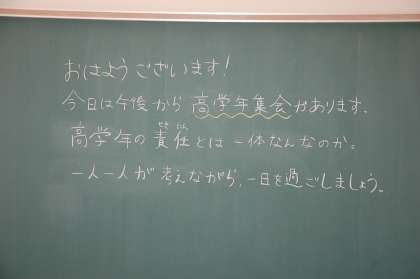 おはようございます!
今日は午後から高学年集会があります。
高学年の責任とは一体なんなのか。
一人一人が考えながら、一日を過ごしましょう。